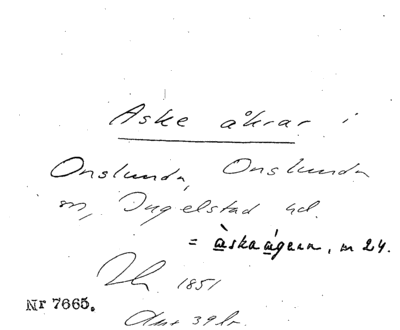 Aske åkrar i
Onslunda, Onslunda
sn, Ingelstad hd.
= àskaágrar, m 24.
1851
Nr 7665.
39